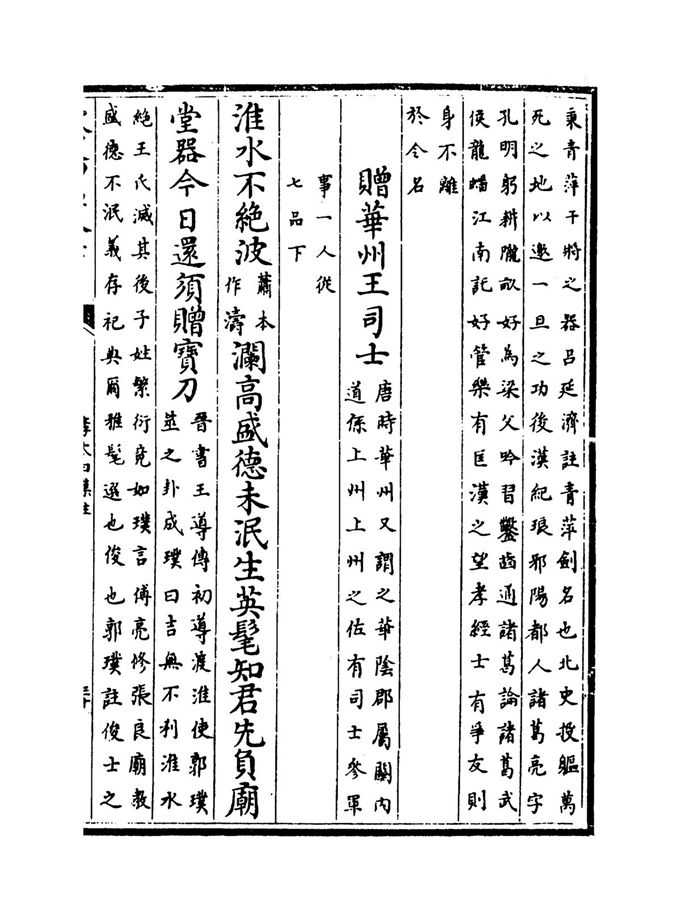 秉青萍干將之器呂延濟註青萍劍名也北史投軀萬
死之地以邀一旦之功後漢紀琅邪陽都人諸葛亮字
孔明躬耕隴畝好為梁父吟習鑿齒通諸葛論諸葛武
侯龍蟠江南託好管樂有匡漢之望孝經士有爭友則
身不離
於令名
贈華州王司士
唐時華州又謂之華陰郡屬關內
道係上州上州之佐有司士參軍
事一人從
七品下
淮水不絕波
蕭本
作濤
瀾高盛德未泯生英髦知君先負廟
堂器今日還須贈寶刀
晉書王導傳初導渡淮使郭璞
筮之卦成璞曰吉無不利淮水
絕王氏滅其後子姓繁衍竟如璞言傅亮修張良廟教
盛德不泯義存祀典爾雅髦選也俊也郭璞註俊士之
李太白集注